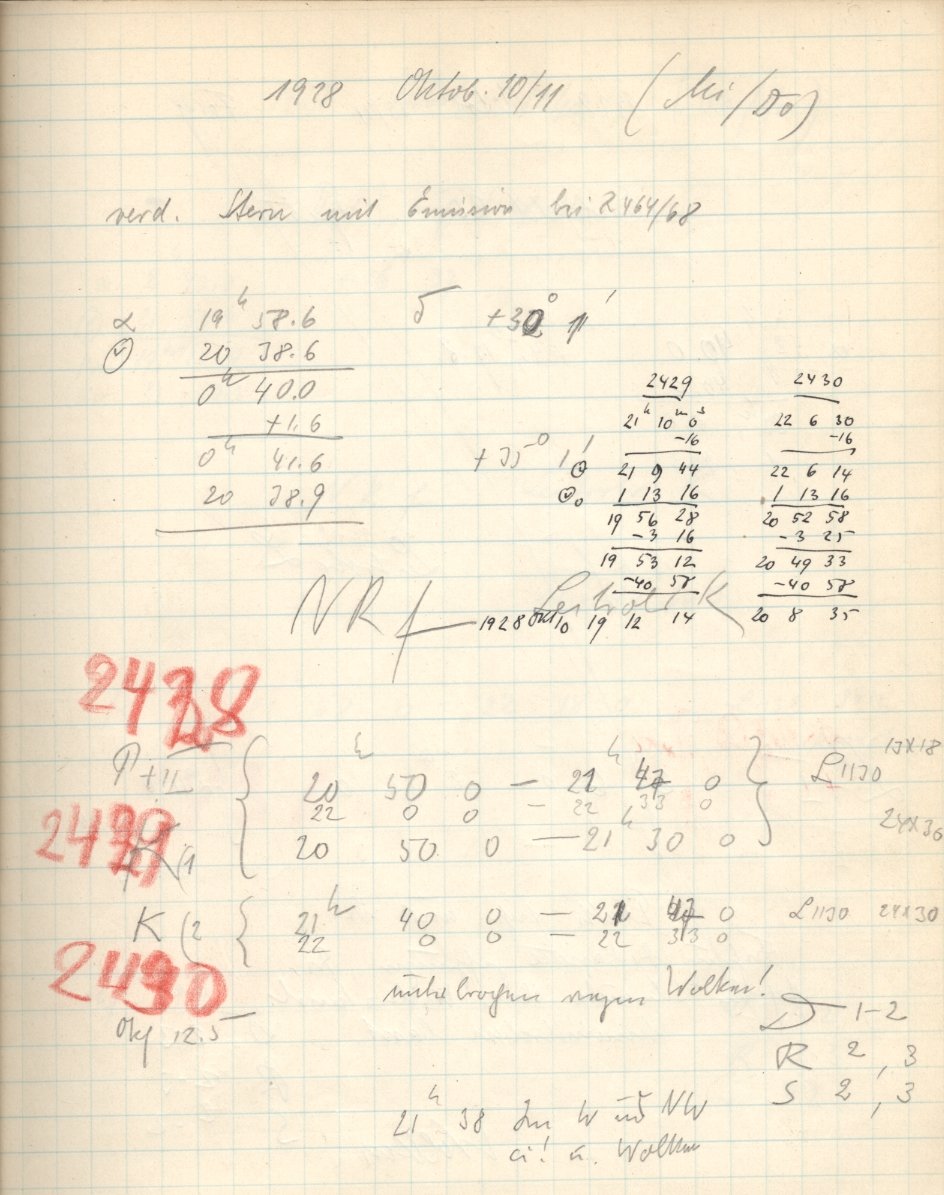 1928 Oktob. 10/11 (Mi/Do)
verd. Stern mit Emission bei R 464/68
α 19h 58.6 δ +30° 1'
20 38.6
0h 40.0
+1.6
0h 41.6 +35° 1'
20 38.9
2429 2430
21h 10m 0s 22 6 30
-16 -16
21 9 44 22 6 14
1 13 16 1 13 16
19 56 28 20 52 58
-3 16 -3 25
19 53 12 20 49 33
-40 58 -40 58
1928 Okt 10 19 12 14 20 8 35
NR
2428
P+II 20h 50 0 — 21h 47 0 L 1130 13X18
22 0 0 — 22 33 0
2429
K (1 20 50 0 — 21h 30 0 24X30
K (2 21h 40 0 — 21 47 0 L 1130 24X30
22 0 0 — 22 33 0
2430
unterbrochen wegen Wolken!
Obj 12.5
D 1-2
R 2, 3
S 2, 3
21h 38 Im W und NW
ci! u. Wolken